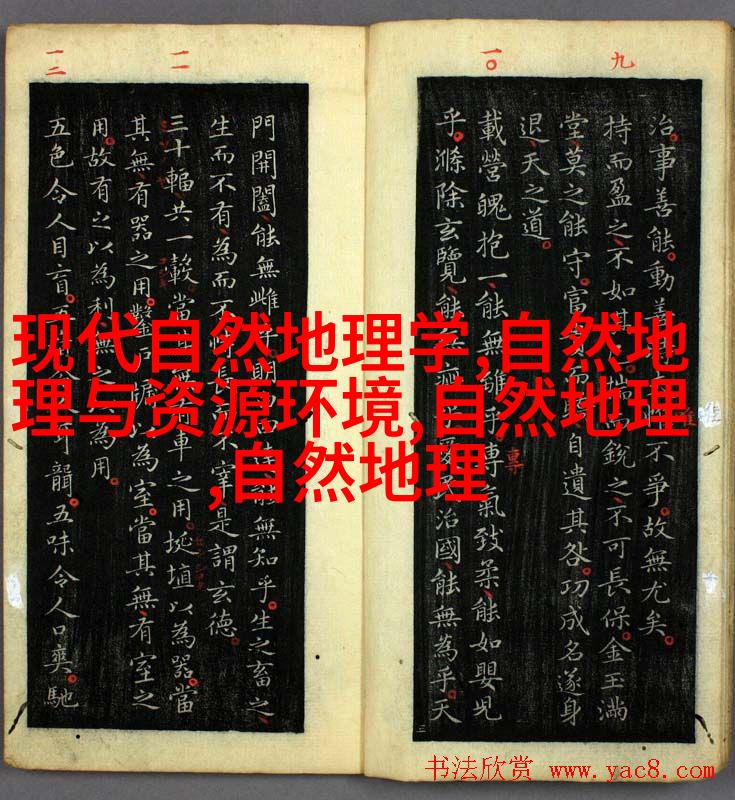 九
治。事善能。動善不爭。故無尤矣。
持而盈之、不如其揣銳之、不可長保。金玉滿
堂、莫之能守。富自遺其咎。功成名遂身
退、天之道。
一〇
載營魄抱一、能無離乎。專氣致柔、能如嬰兒
專
乎。滌除玄覽、能無疵乎。治國、能無為乎。天
一一
門開闔、能無雌能無知乎。生之畜之、
生而不有、為而不長不宰是謂玄德。
三十輻、共一轂。當無車之用。埏埴以為器。當
其無、有器之用。鑿戶牖以為室。當其無、有室之
用。故有之以為利、無之為用。
一二
五色令人目盲。五令人耳聾。五味令人口爽。馳
现代自然地理学,自然地
理与资源环境,自然地理
,自然地理
书法欣赏 www.yac8.com